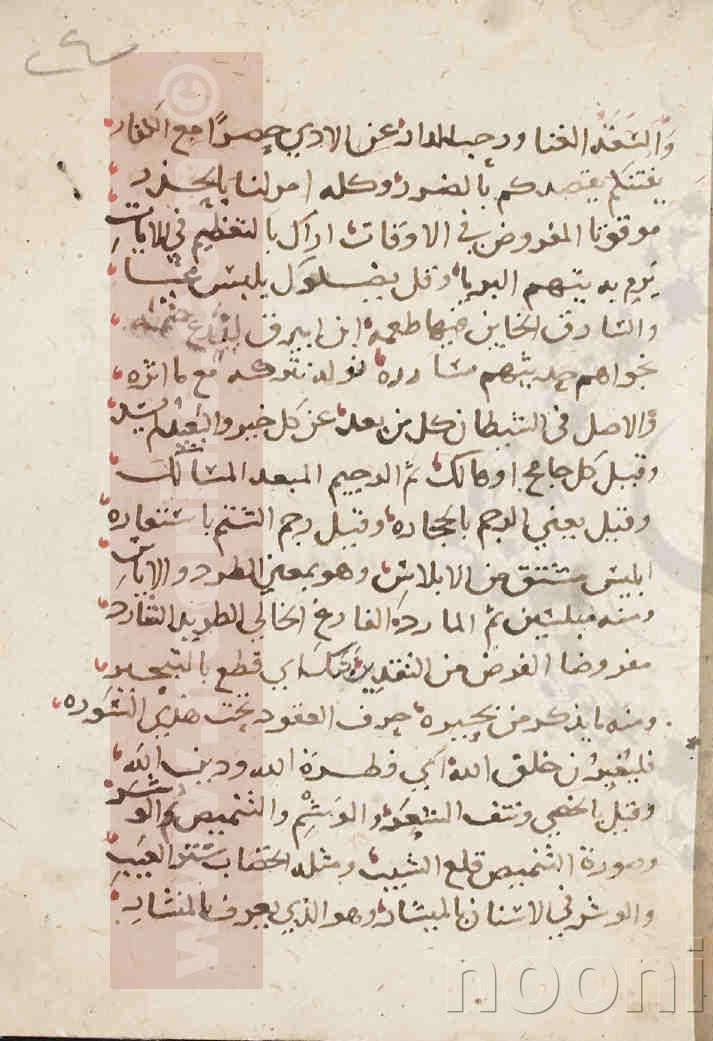 والسعة الغنا ورحب الدار، عن الاذي حصرا مع الكفار،
يفتنكم يقصدكم بالضرر، وكله امر لنا بالحذر
موقوتا المفروض في الاوقات، اراك بالتعظيم في الايات،
يرم به يتهم البريا، وقل بفضل وكل يلبس غيا
والسارق الخاين فيها طعمه، ابن ابيرق
نجواهم حديثهم مساررة، نوله نتركه مع ما اثره،
والاصل في الشيطان كل من بعد، عن كل خير والبعد
وقيل كل جامح او هالك، ثم الرجيم المبعد المشالك
وقيل يعني الرجم بالحجارة، وقيل رجم الشتم باستعارة،
ابليس مشتق من الابلاس، وهو بمعني الطرد والاياس،
ومنه مبلسين ثم المارد، الفارغ الخالي الطريد الشارد،
مفروضا الفرض من التقدير، بتكا اي قطع بالتبحير،
ومنه ما يذكر من بحيرة، حرف العقود تحت هذي السورة،
فليغيرن خلق الله، اي فطرة الله ودين الله،
وقيل بالخصي ونتف الشعر، والوشم والتنميص ثم الوشر
وصورة التنميص قلع الشيب، ومثله الخضاب ستر العيب،
والوشر في الاسنان بالميشار، وهو الذي يعرف بالمنشار،
www.
nooni